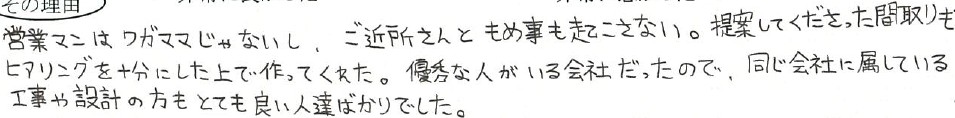 その理由
営業マンはワガママじゃないし、ご近所さんともめ事も起こさない。提案してくださった間取りも
ヒアリングを十分にした上で作ってくれた。優秀な人がいる会社だったので、同じ会社に属している
工事や設計の方もとても良い人達ばかりでした。